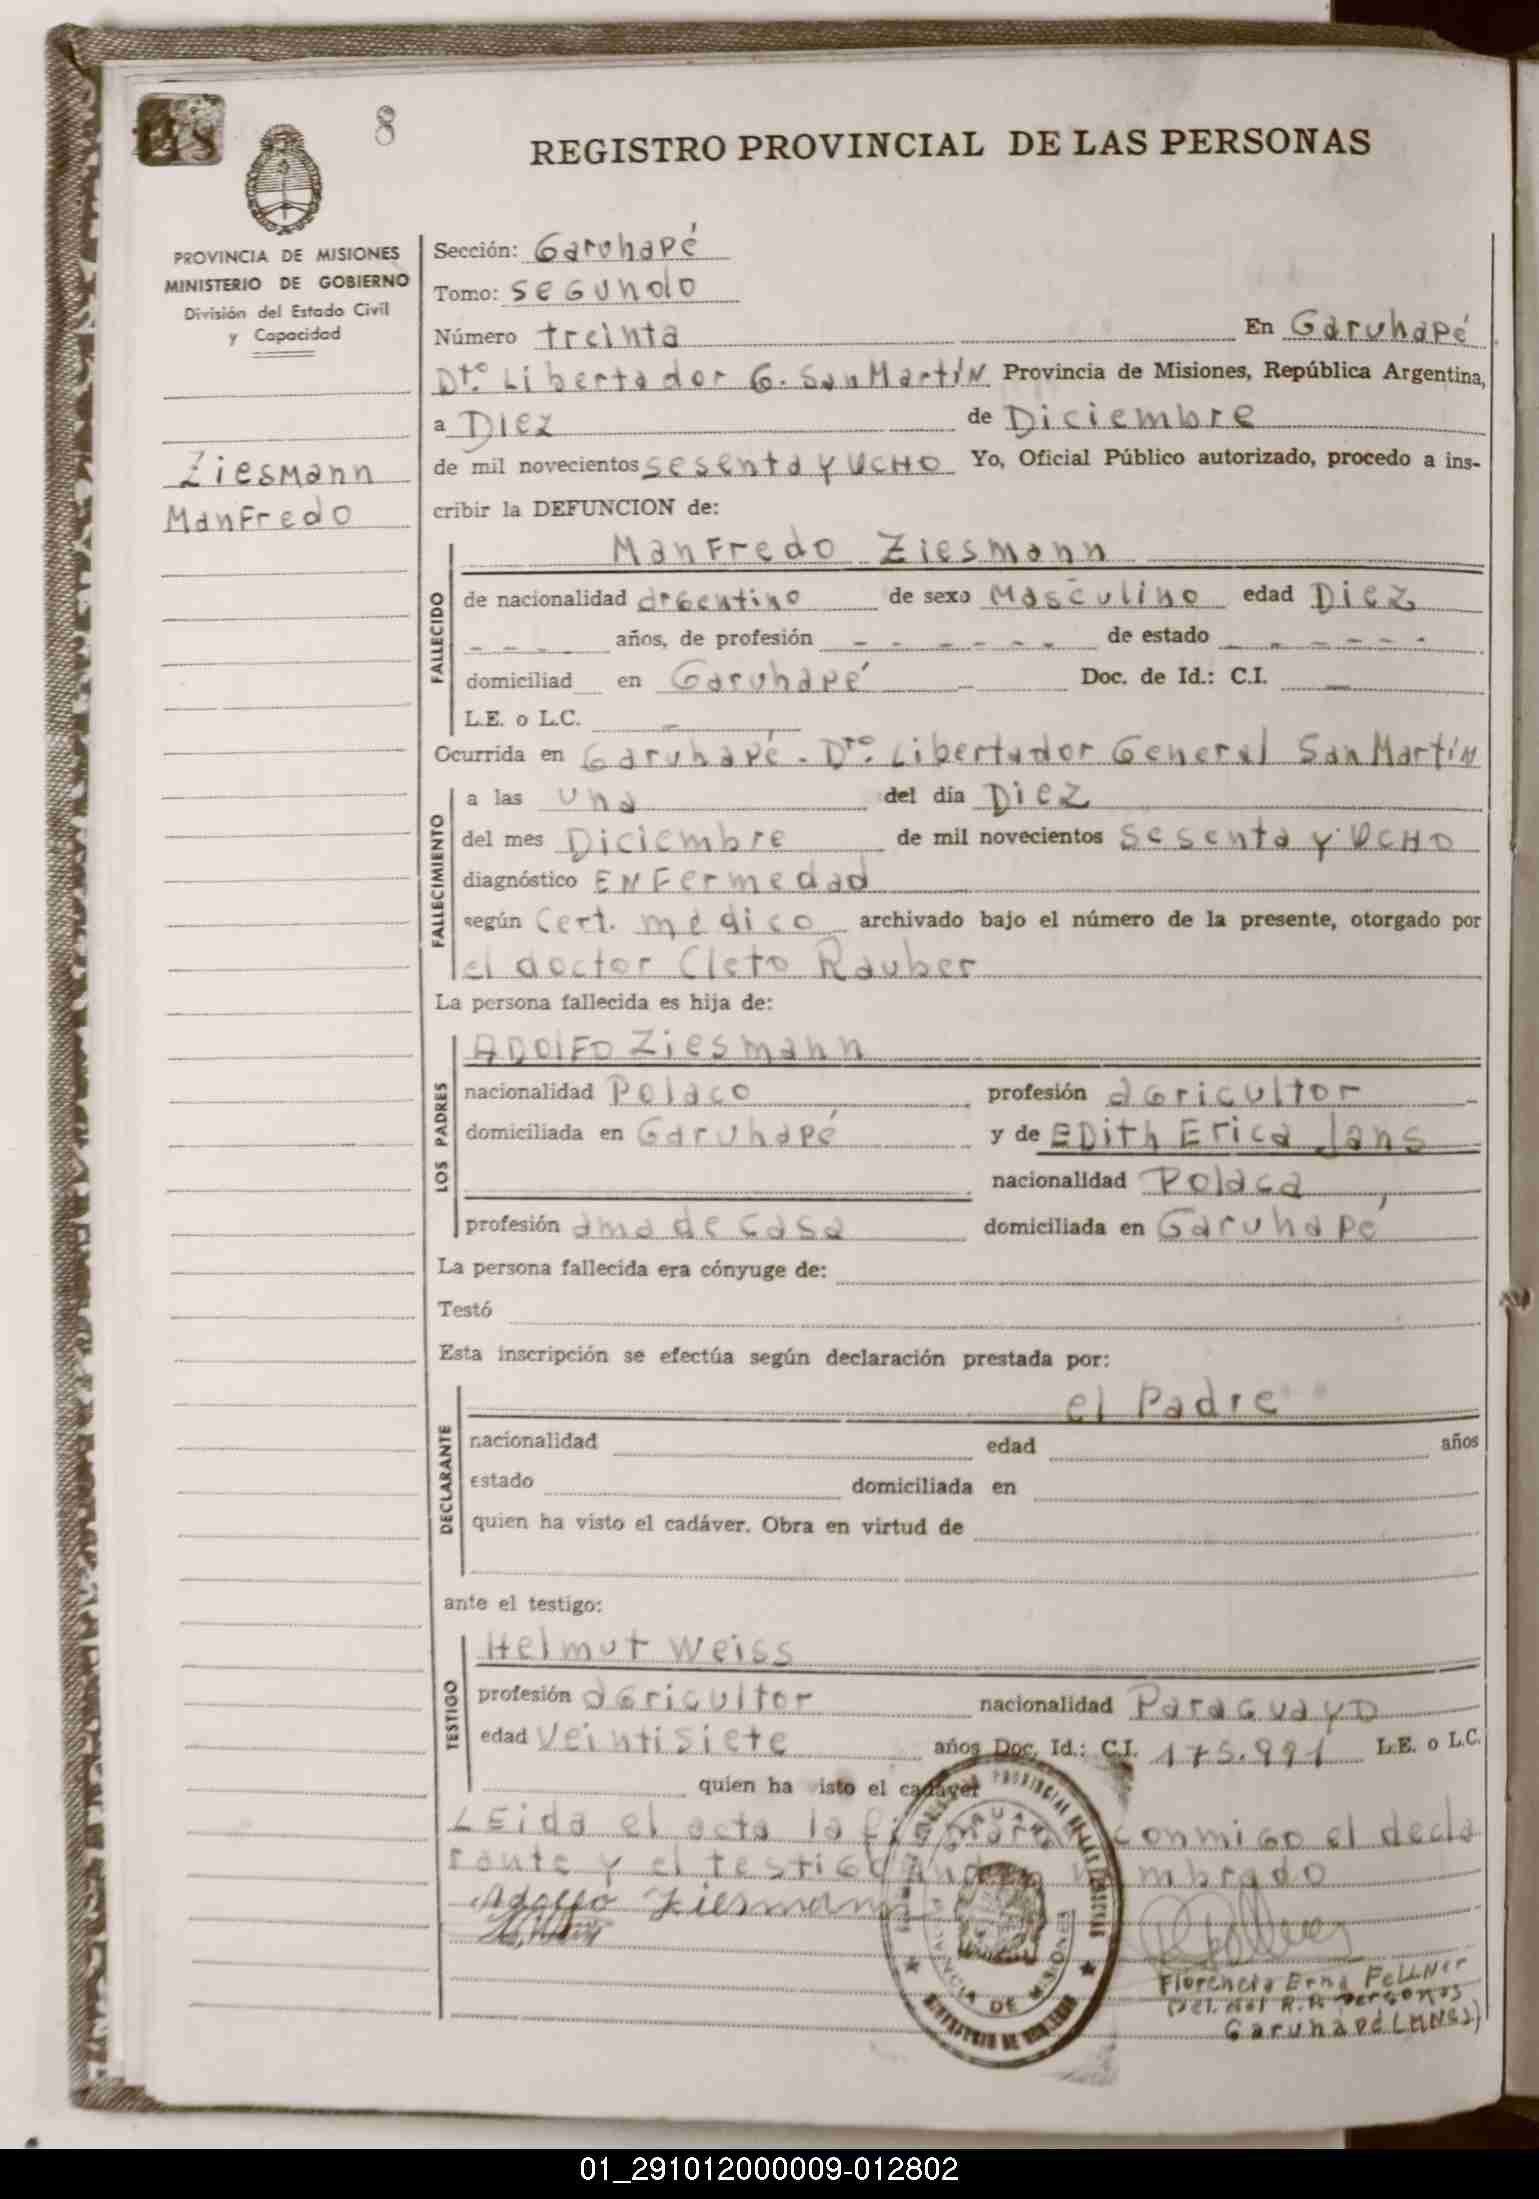 8
REGISTRO PROVINCIAL DE LAS PERSONAS
PROVINCIA DE MISIONES
MINISTERIO DE GOBIERNO
División del Estado Civil
y Capacidad
Ziesmann
Manfredo
Sección: Garuhapé
Tomo: segundo
Número treinta En Garuhapé
Dto. Libertador G. San Martín Provincia de Misiones, República Argentina,
a Diez de Diciembre
de mil novecientos sesenta y ocho Yo, Oficial Público autorizado, procedo a ins-
cribir la DEFUNCION de:
FALLECIDO
Manfredo Ziesmann
de nacionalidad argentino de sexo Masculino edad Diez
- - - años, de profesión - - - - - - de estado - - - - -
domiciliad en Garuhapé - Doc. de Id.: C.I. -
L.E. o L.C. -
Ocurrida en Garuhapé. Dto. Libertador General San Martín
FALLECIMIENTO
a las una del día Diez
del mes Diciembre de mil novecientos sesenta y ocho
diagnóstico Enfermedad
según Cert. médico archivado bajo el número de la presente, otorgado por
el doctor Cleto Rauber
La persona fallecida es hija de:
LOS PADRES
Adolfo Ziesmann
nacionalidad Polaco profesión agricultor
domiciliada en Garuhapé y de Edith Erica Jans
nacionalidad Polaca,
profesión ama de casa domiciliada en Garuhapé
La persona fallecida era cónyuge de:
Testó
Esta inscripción se efectúa según declaración prestada por:
DECLARANTE
el Padre
nacionalidad edad años
estado domiciliada en
quien ha visto el cadáver. Obra en virtud de
ante el testigo:
TESTIGO
Helmut Weiss
profesión agricultor nacionalidad Paraguayo
edad Veintisiete años Doc. Id.: C.I. 175.991 L.E. o L.C.
quien ha visto el cadáver
Leida el acta la firmaron conmigo el decla
rante y el testigo nombrado
Adolfo Ziesmann
Florencia Erna Fellner
Del. del R.P. Personas
Garuhapé (Mnes)
PROVINCIA DE MISIONES
MINISTERIO DE GOBIERNO
01_291012000009-012802